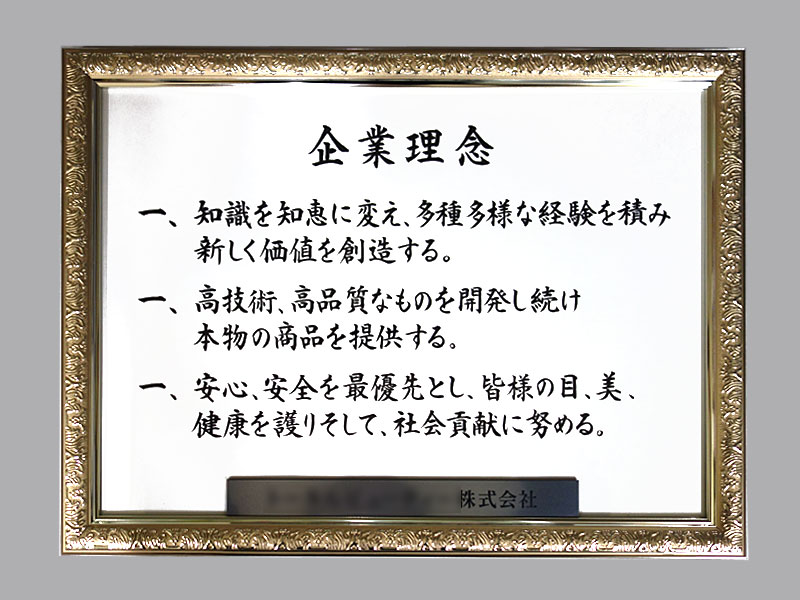 企業理念
一、知識を知恵に変え、多種多様な経験を積み
新しく価値を創造する。
一、高技術、高品質なものを開発し続け
本物の商品を提供する。
一、安心、安全を最優先とし、皆様の目、美、
健康を護りそして、社会貢献に努める。
株式会社